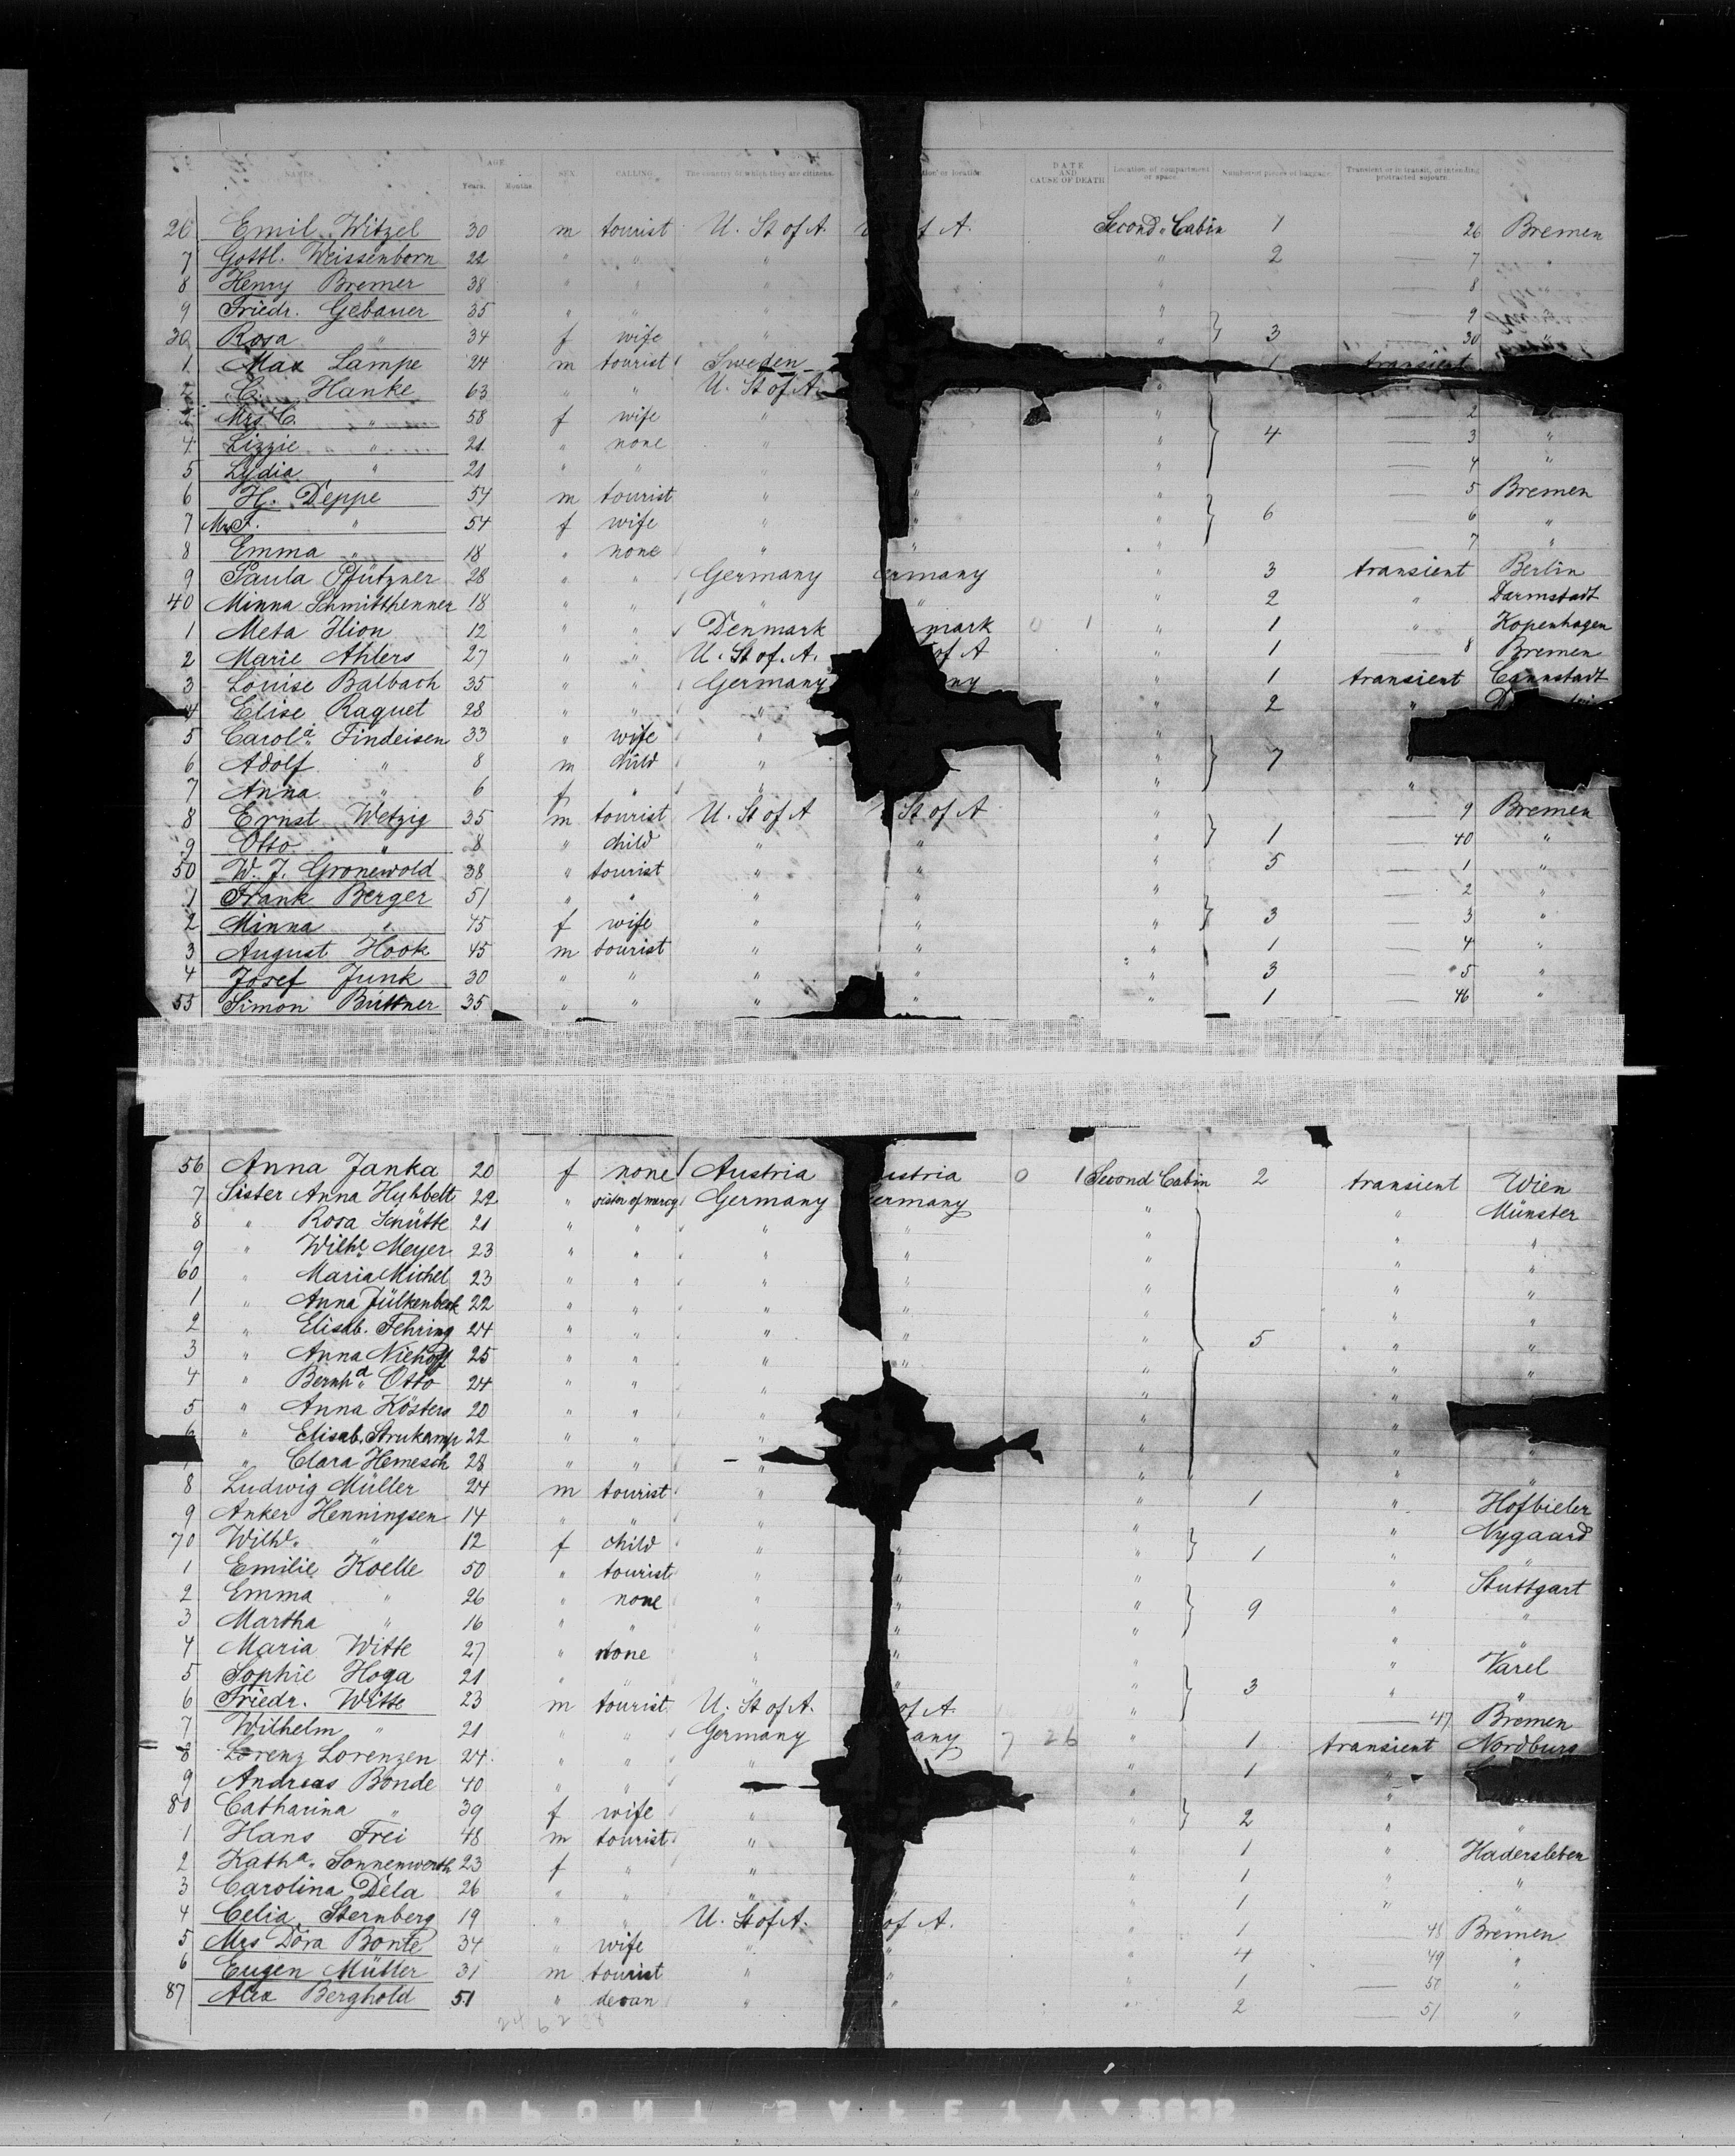 NAMES. AGE. Years. Months. SEX. CALLING. The country of which they are citizens. or location. DATE AND CAUSE OF DEATH Location of compartment or space. Number of pieces of baggage. Transient or in transit, or intending protracted sojourn.
26 Emil Witzel 30 m tourist U. St of A. f A. Second Cabin 1 — 26 Bremen
7 Gottl. Weissenborn 22 " " " " 2 — 7 "
8 Henry Bremer 38 " " " " — 8
9 Friedr. Gebauer 35 " " " " — 9
30 Rosa " 34 f wife " " } 3 — 30 "
1 Max Lampe 24 m tourist Sweden 1 transient
2 C. Hanke 63 " " U. St of A. "
3 Mrs C. " 58 f wife " " — 2 "
4 Lizzie " 21 " none " " } 4 — 3 "
5 Lydia " 21 " " " " — 4 "
6 H. Deppe 54 m tourist " " " — 5 Bremen
7 Mrs F. " 54 f wife " " } 6 — 6 "
8 Emma " 18 " none " " " — 7 "
9 Paula Pfützner 28 " " Germany ermany " 3 transient Berlin
40 Minna Schmitthenner 18 " " " " " 2 " Darmstadt
1 Meta Ilion 12 " " Denmark mark 0 1 " 1 " Kopenhagen
2 Marie Ahlers 27 " " U. St of. A. of A " 1 — 8 Bremen
3 Louise Balbach 35 " " Germany ny " 1 transient Cannstadt
4 Elise Raquet 28 " " " " 2 "
5 Carola Findeisen 33 " wife " "
6 Adolf " 8 m child " " } 7
7 Anna " 6 f " " " "
8 Ernst Wetzig 35 m tourist U. St of A St of A " — 9 Bremen
9 Otto " 8 " child " " " } 1 — 40 "
50 W. J. Gronewold 38 " tourist " " " 5 — 1 "
1 Frank Berger 51 " " " " " — 2 "
2 Minna " 45 f wife " " " } 3 — 3 "
3 August Hook 45 m tourist " " " 1 — 4 "
4 Josef Junk 30 " " " " " 3 — 5 "
55 Simon Büttner 35 " " " " " 1 — 46 "
56 Anna Janka 20 f none Austria ustria 0 1 Second Cabin 2 transient Wien
7 Sister Anna Hyhbelt 22 " sister of mercy Germany ermany " " Münster
8 " Rosa Schütte 21 " " " " " " "
9 " Wilhe Meyer 23 " " " " " " "
60 " Maria Michel 23 " " " " " " "
1 " Anna Jülkenbeck 22 " " " " " " "
2 " Elisab. Fehring 24 " " " " " " "
3 " Anna Niehoff 25 " " " " " } 5 " "
4 " Bernhd Otto 24 " " " " " " "
5 " Anna Kösters 20 " " " " "
6 " Elisab. Strukamp 22 " " " " " "
" Clara Hemesch 28 " " " " " "
8 Ludwig Müller 24 m tourist " " 1 " Hofbieler
9 Anker Henningsen 14 " " " " " Nygaard
70 Wilhe. " 12 f child " " " } 1 " "
1 Emilie Koelle 50 " tourist " " " " Stuttgart
2 Emma " 26 " none " " " } 9 " "
3 Martha " 16 " " " " " " "
4 Maria Witte 27 " none " " " " Varel
5 Sophie Hoga 21 " " " " " } 3 " "
6 Friedr. Witte 23 m tourist U. St of A. of A. " — 47 Bremen
7 Wilhelm " 21 " " Germany any 7 26 " 1 transient Nordburg
8 Lorenz Lorenzen 24. " " " " 1 "
9 Andreas Bonde 40 " " " "
80 Catharina " 39 f wife " " } 2 " "
1 Hans Frei 48 m tourist " " 1 " Hadersleben
2 Katha. Sonnenwerth 23 f " " " 1 " "
3 Carolina Dela 26 " " " " " 1 " "
4 Celia Sternberg 19 " " U. St of A. of A. " 1 — 48 Bremen
5 Mrs Dora Bonte 34 " wife " " " 4 49 "
6 Eugen Müller 31 m tourist " " " 1 — 50 "
87 Alex Berghold 51 " " " " 2 — 51 "
24 62
DUPONT SAFETY